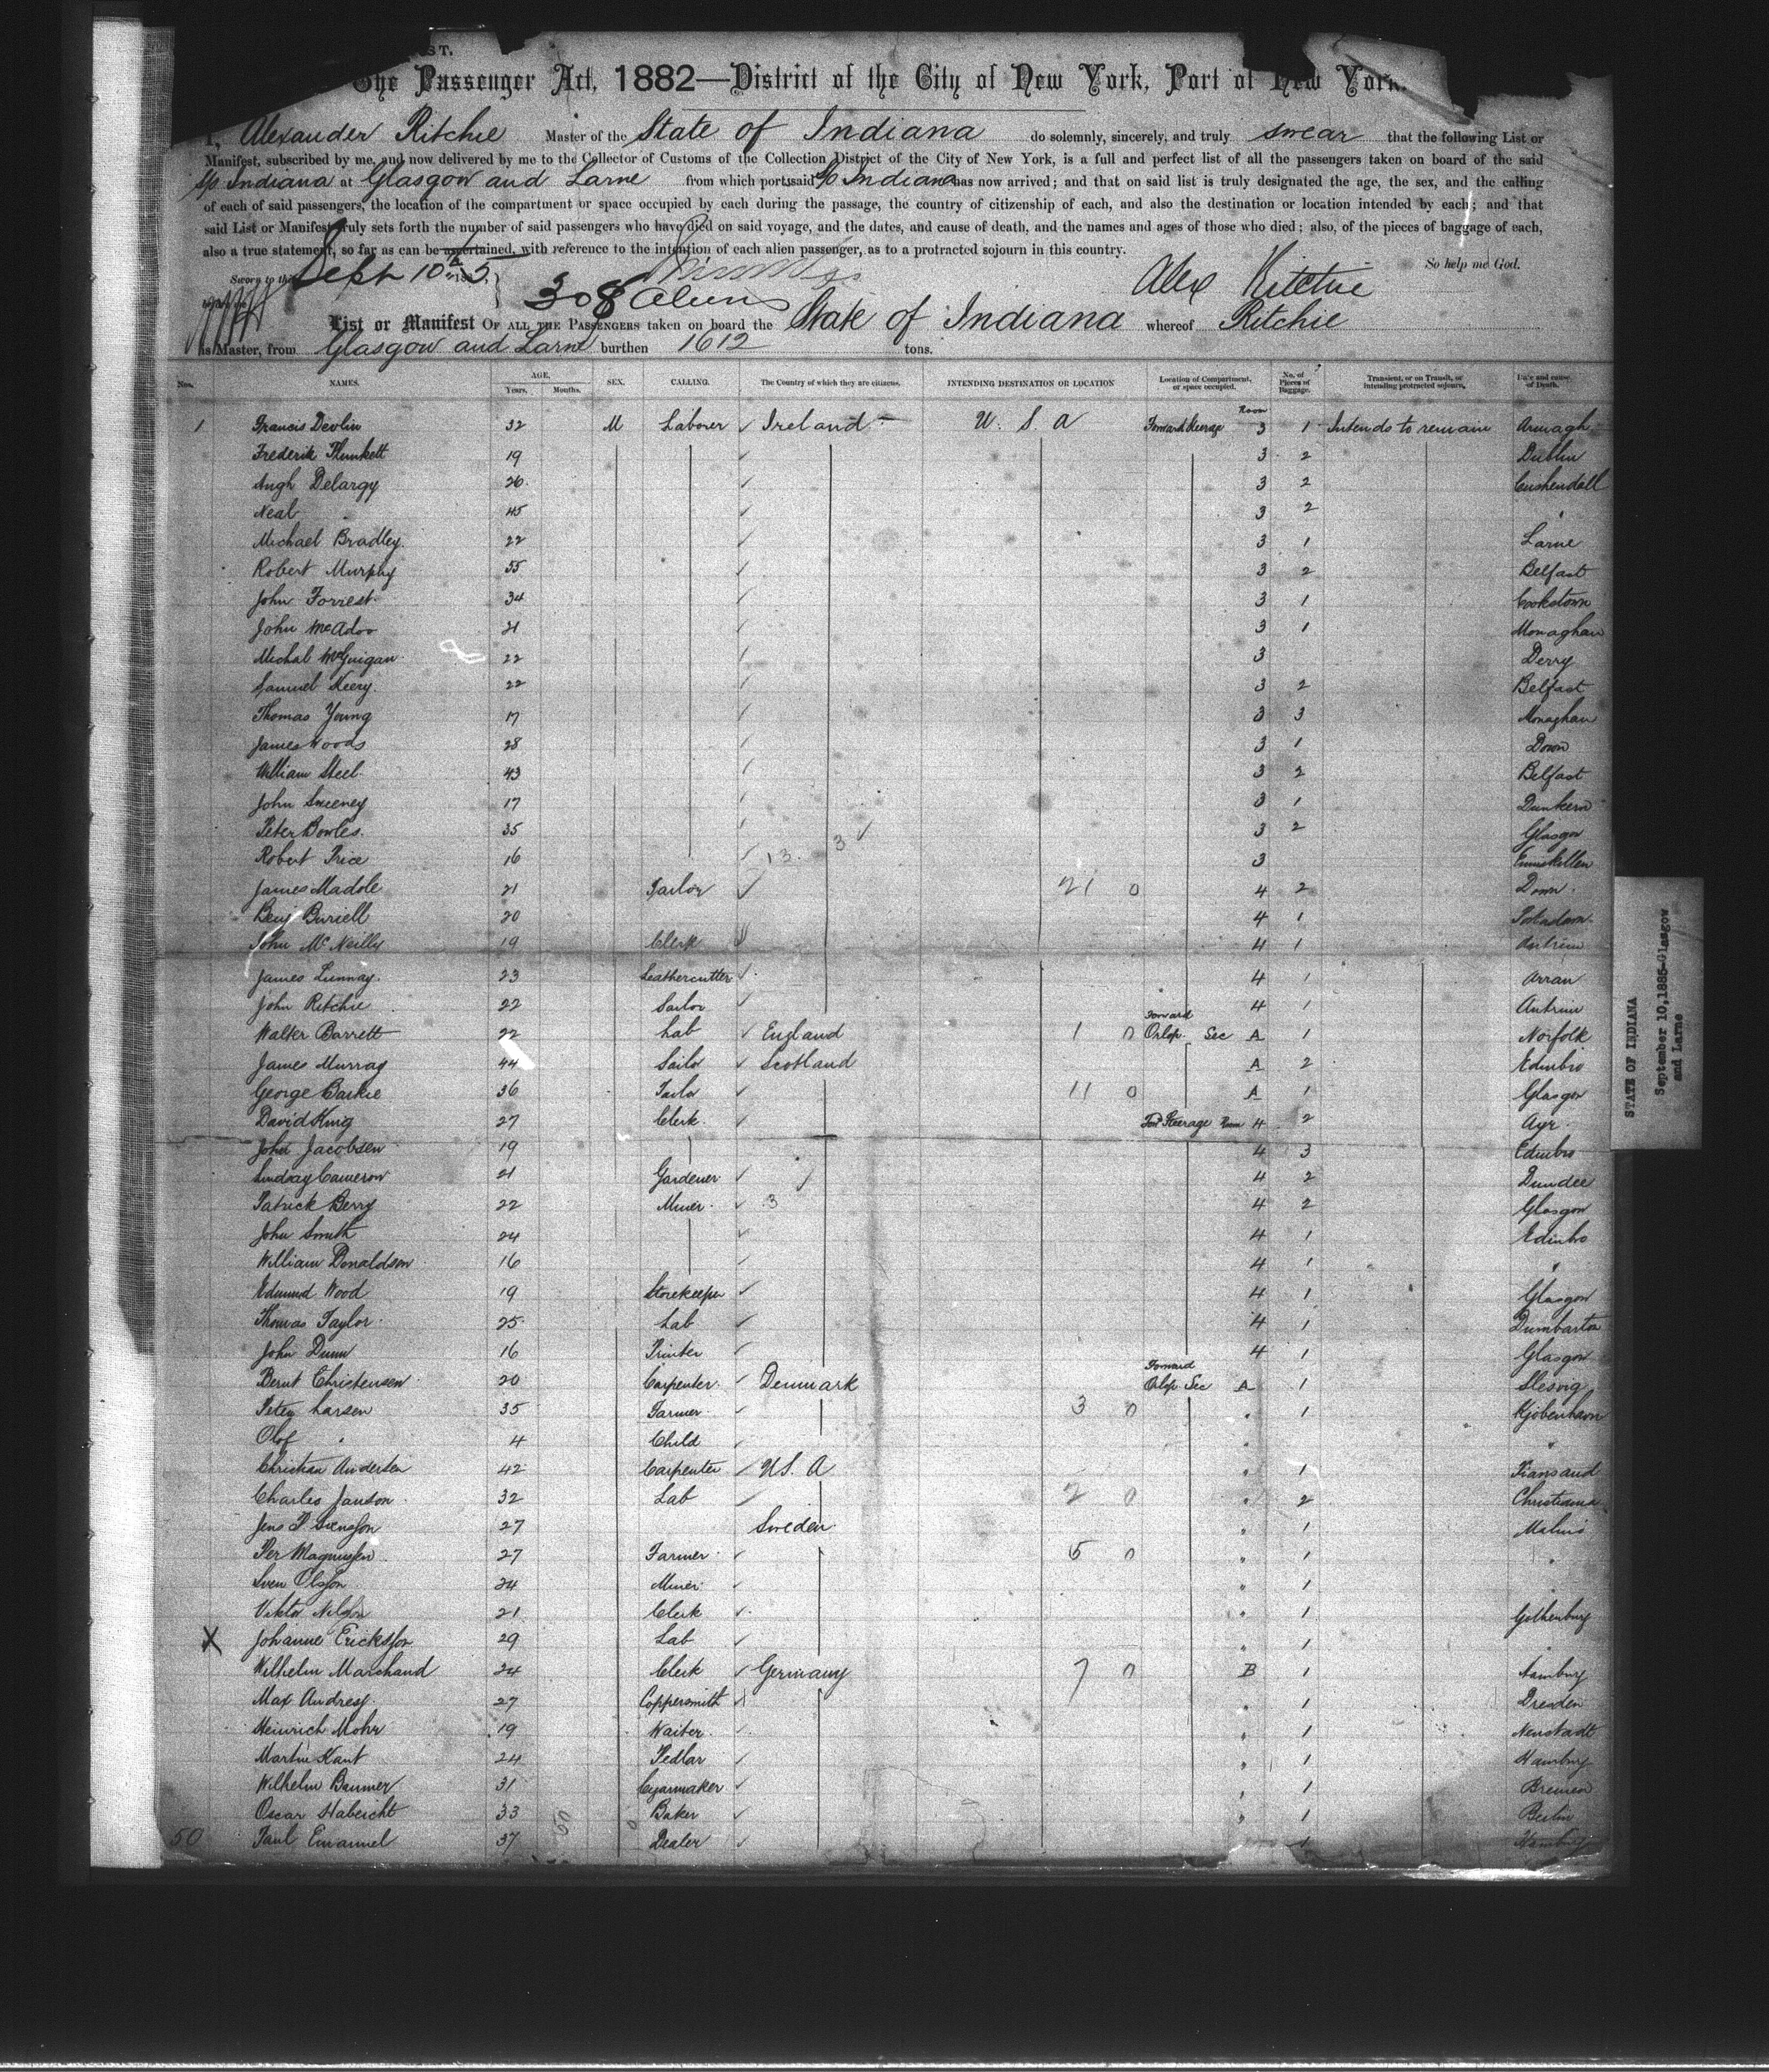 ST.
The Passenger Act, 1882—District of the City of New York, Port of New York.
I, Alexander Ritchie Master of the State of Indiana do solemnly, sincerely, and truly swear that the following List or
Manifest, subscribed by me, and now delivered by me to the Collector of Customs of the Collection District of the City of New York, is a full and perfect list of all the passengers taken on board of the said
S/S Indiana at Glasgow and Larne from which port, said S/S Indiana has now arrived; and that on said list is truly designated the age, the sex, and the calling
of each of said passengers, the location of the compartment or space occupied by each during the passage, the country of citizenship of each, and also the destination or location intended by each; and that
said List or Manifest truly sets forth the number of said passengers who have died on said voyage, and the dates, and cause of death, and the names and ages of those who died; also, of the pieces of baggage of each,
also a true statement, so far as can be ascertained, with reference to the intention of each alien passenger, as to a protracted sojourn in this country.
Sworn to this Sept 10th 1885 So help me God.
308 Aliens Alex Ritchie
List or Manifest OF ALL THE PASSENGERS taken on board the State of Indiana whereof Ritchie
is Master, from Glasgow and Larne burthen 1612 tons.
Nos. NAMES. AGE. Years. Months. SEX. CALLING. The Country of which they are citizens. INTENDING DESTINATION OR LOCATION Location of Compartment, or space occupied. No. of Pieces of Baggage. Transient, or on Transit, or intending protracted sojourn. Date and cause of Death.
1 Francis Devlin 32 M Laborer Ireland U. S. A Forward Steerage Room 3 1 Intends to remain Armagh
Frederik Plunkett 19 3 2 Dublin
Hugh Delargy 26 3 2 Cushendall
Neal " 45 3 2 "
Michael Bradley 22 3 1 Larne
Robert Murphy 55 3 2 Belfast
John Forrest 34 3 1 Cookstown
John McAdoo 21 3 1 Monaghan
Michal McGuigan 22 3 Derry
Samuel Keery 22 3 2 Belfast
Thomas Young 17 3 3 Monaghan
James Woods 28 3 1 Down
William Steel 43 3 2 Belfast
John Sweeney 17 3 1
Peter Bowles 35 3 2 Glasgow
Robert Price 16 13 3 3 Enniskillen
James Madole 21 Tailor 21 0 4 2 Down
Benj Burrell 20 4 1
John McNeilly 19 Clerk 4 1 Antrim
James Lunnay 23 Leathercutter 4 1 Arran
John Ritchie 22 Sailor 4 1 Antrim
Walter Barrett 22 Lab England 1 0 Forward Orlop Sec A 1 Norfolk
James Murray 44 Sailor Scotland A 2 Edinbro
George Barkie 36 Tailor 11 0 A 1 Glasgow
David King 27 Clerk Ford Steerage Room 4 2 Ayr
John Jacobsen 19 4 3 Edinbro
Lindsay Cameron 21 Gardener 4 2 Dundee
Patrick Berry 22 Miner 3 4 2 Glasgow
John Smith 24 4 1 Edinbro
William Donaldson 16 4 1 "
Edmund Wood 19 Storekeeper 4 1 Glasgow
Thomas Taylor 25 Lab 4 1 Dumbarton
John Dunn 16 Printer 4 1 Glasgow
Bernt Christensen 20 Carpenter Denmark Forward Orlop Sec A 1 Slesvig
Peter Larsen 35 Farmer 3 0 " 1 Kjobenhavn
Olof " 4 Child " "
Christian Andersen 42 Carpenter U.S. A " 1
Charles Janson 32 Lab 2 0 " 2 Christiania
Jens P Svensson 27 Sweden " 1 Malmo
Per Magnusson 27 Farmer 5 0 " 1 "
Sven Olsson 24 Miner " 1
Viktor Nilsson 21 Clerk " 1 Gothenburg
X Johanne Ericksson 29 Lab " 1 "
Wilhelm Marchand 24 Clerk Germany 7 0 B 1 Hamburg
Max Andresy 27 Coppersmith " 1 Dresden
Heinrich Mohr 19 Waiter " 1 Neustadt
Martin Kant 24 Pedlar " 1 Hamburg
Wilhelm Baumer 31 Cigarmaker " 1 Bremen
Oscar Habeicht 33 Baker " 1 Berlin
50 Paul Emanuel 37 50 0 Dealer 1 Hamburg
STATE OF INDIANA
September 10, 1885-Glasgow
and Larne